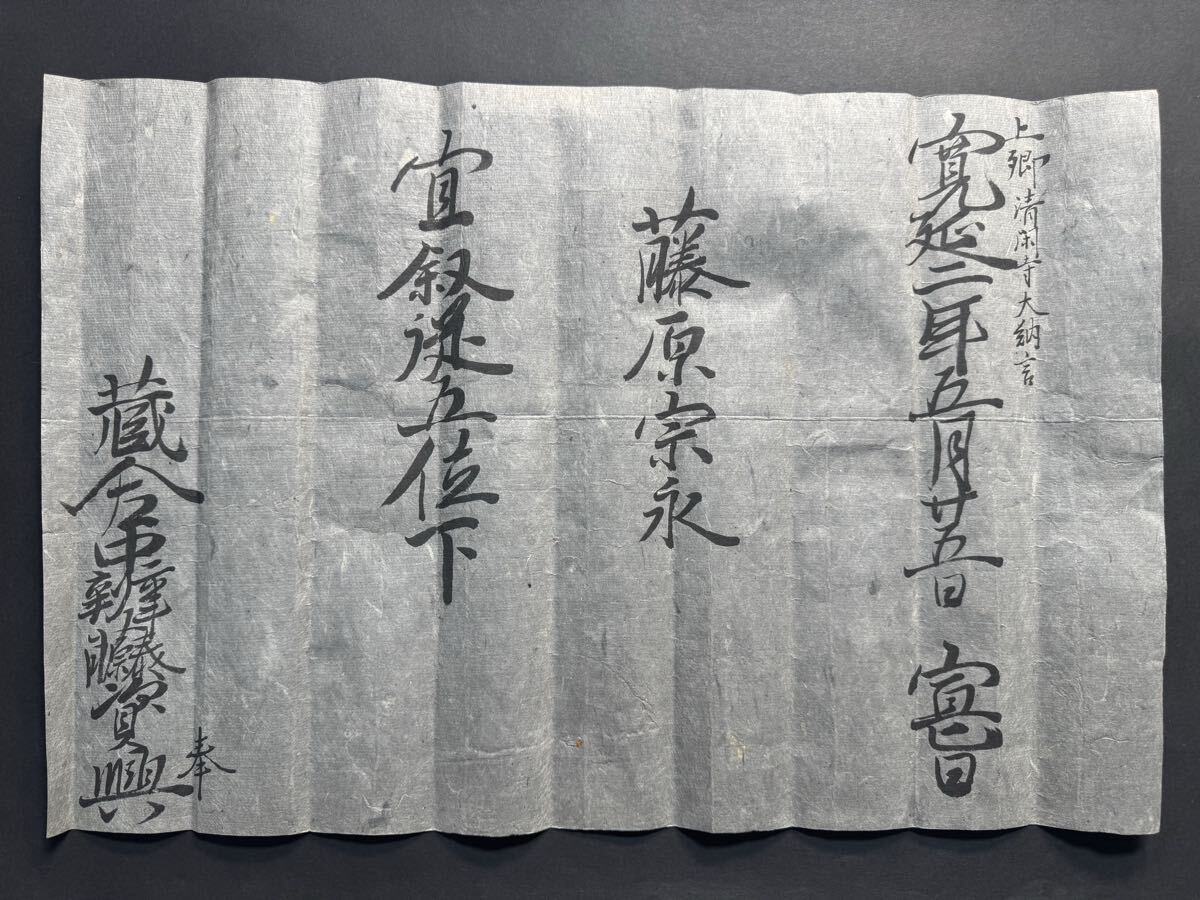 上卿 清閑寺大納言
寛延二年五月廿五日 宣旨
藤原宗永
宜叙従五位下
蔵人中宮大進兼左少辨藤原資興
奉